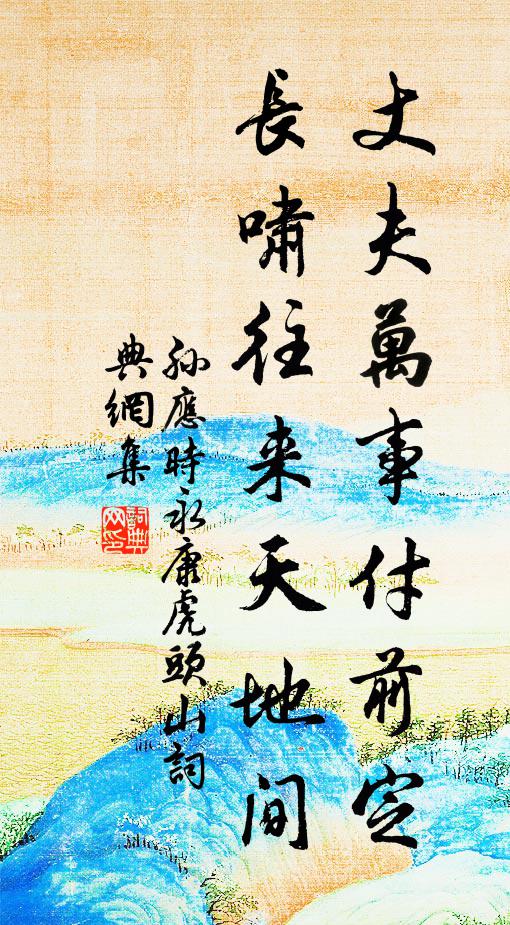 丈夫萬事付前定
長嘯往来天地間
孫應時永康虎頭山詞
典網集
詞典
网印